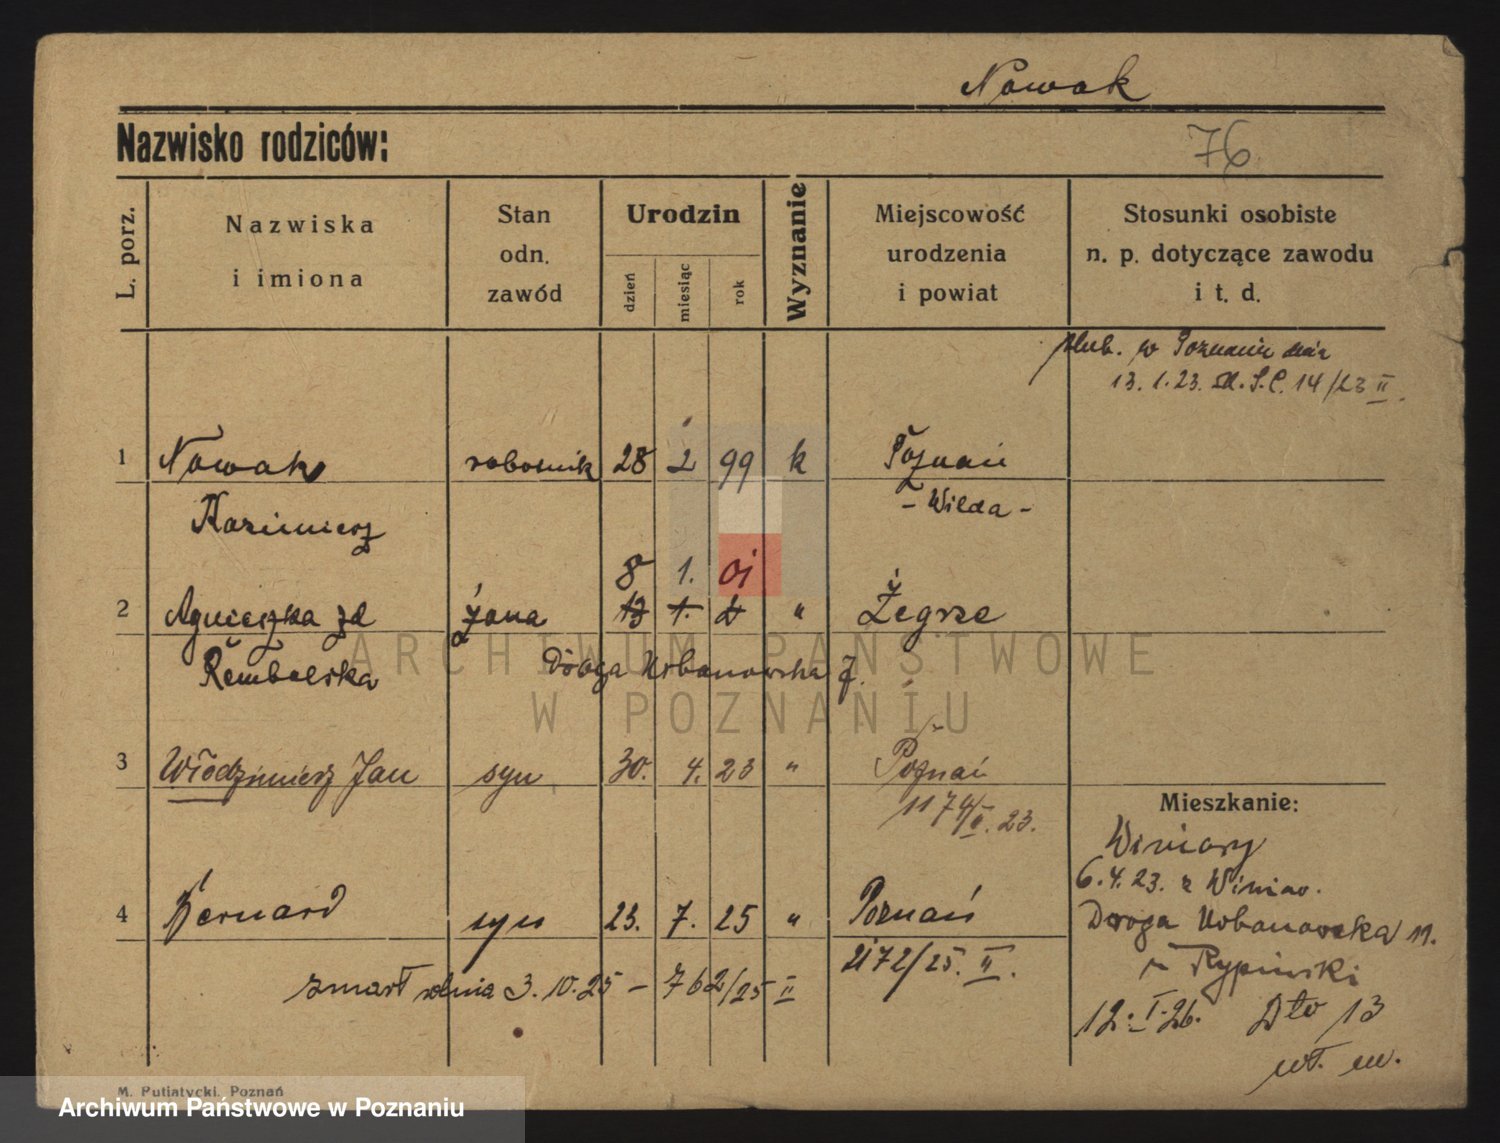 Nowak
Nazwisko rodziców:
76
L. porz.
Nazwiska
i imiona
Stan
odn.
zawód
Urodzin
dzień
miesiąc
rok
Wyznanie
Miejscowość
urodzenia
i powiat
Stosunki osobiste
n. p. dotyczące zawodu
i t. d.
ślub. w Poznaniu
13. 1. 23. S. C. 14/23 II.
1 Nowak robotnik 28 2 99 k Poznań
Kazimierz - Wilda -
8 1. 01
2 Agnieszka zd żona 13 1. " Żegrze
Rembelska Droga Urbanowska 7.
3 Włodzimierz Jan syn 30. 4. 23 " Poznań
1174/II. 23.
Mieszkanie:
Winiary
6. 4. 23. z Winiar.
4 Bernard syn 23. 7. 25 " Poznań
Droga Urbanowska 11.
2172/25. II.
Rypiński
zmarł dnia 3. 10. 25 - 762/25 II
12. I. 26. Dto 13
wł. m.
ARCHIWUM PAŃSTWOWE
W POZNANIU
M. Putiatycki, Poznań
Archiwum Państwowe w Poznaniu